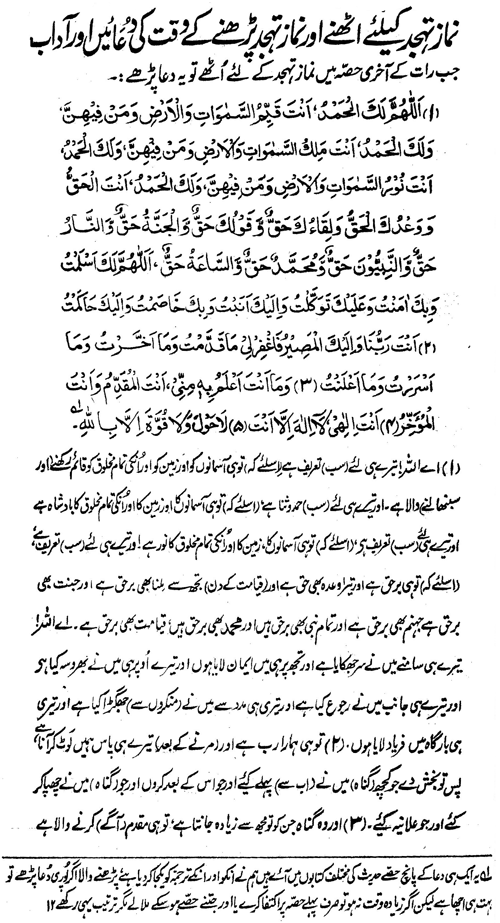 نماز تہجد کیلئے اٹھنے اور نماز تہجد پڑھنے کے وقت کی دُعائیں اور آداب
جب رات کے آخری حصّہ میں نماز تہجد کے لئے اُٹھے تو یہ دعا پڑھے :۔
(۱) اَللّٰهُمَّ لَكَ الْحَمْدُ، اَنْتَ قَيِّمُ السَّمٰوَاتِ وَالْاَرْضِ وَمَنْ فِيْهِنَّ،
وَلَكَ الْحَمْدُ، اَنْتَ مَلِكُ السَّمٰوَاتِ وَالْاَرْضِ وَمَنْ فِيْهِنَّ، وَلَكَ الْحَمْدُ،
اَنْتَ نُوْرُ السَّمٰوَاتِ وَالْاَرْضِ وَمَنْ فِيْهِنَّ، وَلَكَ الْحَمْدُ، اَنْتَ الْحَقُّ
وَوَعْدُكَ الْحَقُّ وَلِقَاءُكَ حَقٌّ وَّقَوْلُكَ حَقٌّ وَّالْجَنَّةُ حَقٌّ وَّالنَّارُ
حَقٌّ وَّالنَّبِيُّوْنَ حَقٌّ وَّمُحَمَّدٌ حَقٌّ وَّالسَّاعَةُ حَقٌّ، اَللّٰهُمَّ لَكَ اَسْلَمْتُ
وَبِكَ اٰمَنْتُ وَعَلَيْكَ تَوَكَّلْتُ وَاِلَيْكَ اَنَبْتُ وَبِكَ خَاصَمْتُ وَاِلَيْكَ حَاكَمْتُ
(۲) اَنْتَ رَبُّنَا وَاِلَيْكَ الْمَصِيْرُ فَاغْفِرْلِيْ مَا قَدَّمْتُ وَمَا اَخَّرْتُ وَمَا
اَسْرَرْتُ وَمَا اَعْلَنْتُ (۳) وَمَا اَنْتَ اَعْلَمُ بِهٖ مِنِّيْ، اَنْتَ الْمُقَدِّمُ وَاَنْتَ
الْمُؤَخِّرُ (۴) اَنْتَ اِلٰهِيْ لَآ اِلٰهَ اِلَّا اَنْتَ (۵) لَا حَوْلَ وَلَا قُوَّةَ اِلَّا بِاللّٰهِ ۔ لہ
(۱) اے اللہ! تیرے ہی لئے (سب) تعریف ہے (اسلئے کہ) تو ہی آسمانوں کو اور زمین کو اور انکی تمام مخلوق کو قائم رکھنے اور
سنبھالنے والا ہے۔ اور تیرے ہی لئے (سب) حمد و ثنا ہے، (اسلئے کہ) تو ہی آسمانوں کا اور زمین کا اور انکی تمام مخلوق کا بادشاہ ہے
اور تیرے ہی لئے (سب) تعریف ہے، (اسلئے کہ) تو ہی آسمانوں کا، زمین کا اور انکی تمام مخلوق کا نور ہے، اور تیرے ہی لئے (سب) تعریف ہے
(اسلئے کہ) تو ہی برحق ہے اور تیرا وعدہ بھی حق ہے اور (قیامت کے دن) تجھ سے ملنا بھی برحق ہے اور جنت بھی
برحق ہے جہنم بھی برحق ہے اور تمام نبی بھی برحق ہیں اور محمد بھی برحق ہیں، قیامت بھی برحق ہے۔ اے اللہ!
تیرے ہی سامنے میں نے سر جھکایا ہے اور تجھ پر ہی میں ایمان لایا ہوں اور تیرے اُوپر ہی میں نے بھروسہ کیا ہے
اور تیرے ہی جانب میں نے رجوع کیا ہے اور تیری ہی مدد سے میں نے (منکروں سے) جھگڑا کیا ہے اور تیری
ہی بارگاہ میں فریاد لایا ہوں۔ (۲) تو ہی ہمارا رب ہے اور (مرنے کے بعد) تیرے ہی پاس ہمیں لوٹ کر آنا ہے،
پس تو بخش دے جو کچھ (گناہ) میں نے (اب سے) پہلے کیئے اور جو اس کے بعد کروں اور جو (گناہ) میں نے چھپا کر
کئے اور جو علانیہ کیئے۔ (۳) اور وہ گناہ جن کو تو مجھ سے زیادہ جانتا ہے، تو ہی مقدم (آگے) کرنے والا ہے
لہ یہ ایک ہی دعا کے پانچ حصے حدیث کی مختلف کتابوں میں آئے ہیں ہم نے انکو اور انکے ترجمہ کو یکجا کر دیا ہے پڑھنے والا اگر پُوری دُعا پڑھے تو
بہت ہی اچھا ہے لیکن اگر زیادہ وقت نہ ہو تو صرف پہلے حصّہ پر اکتفا کرے یا اور جتنے حصے ہو سکے ملالے مگر ترتیب یہی رکھے ۱۲